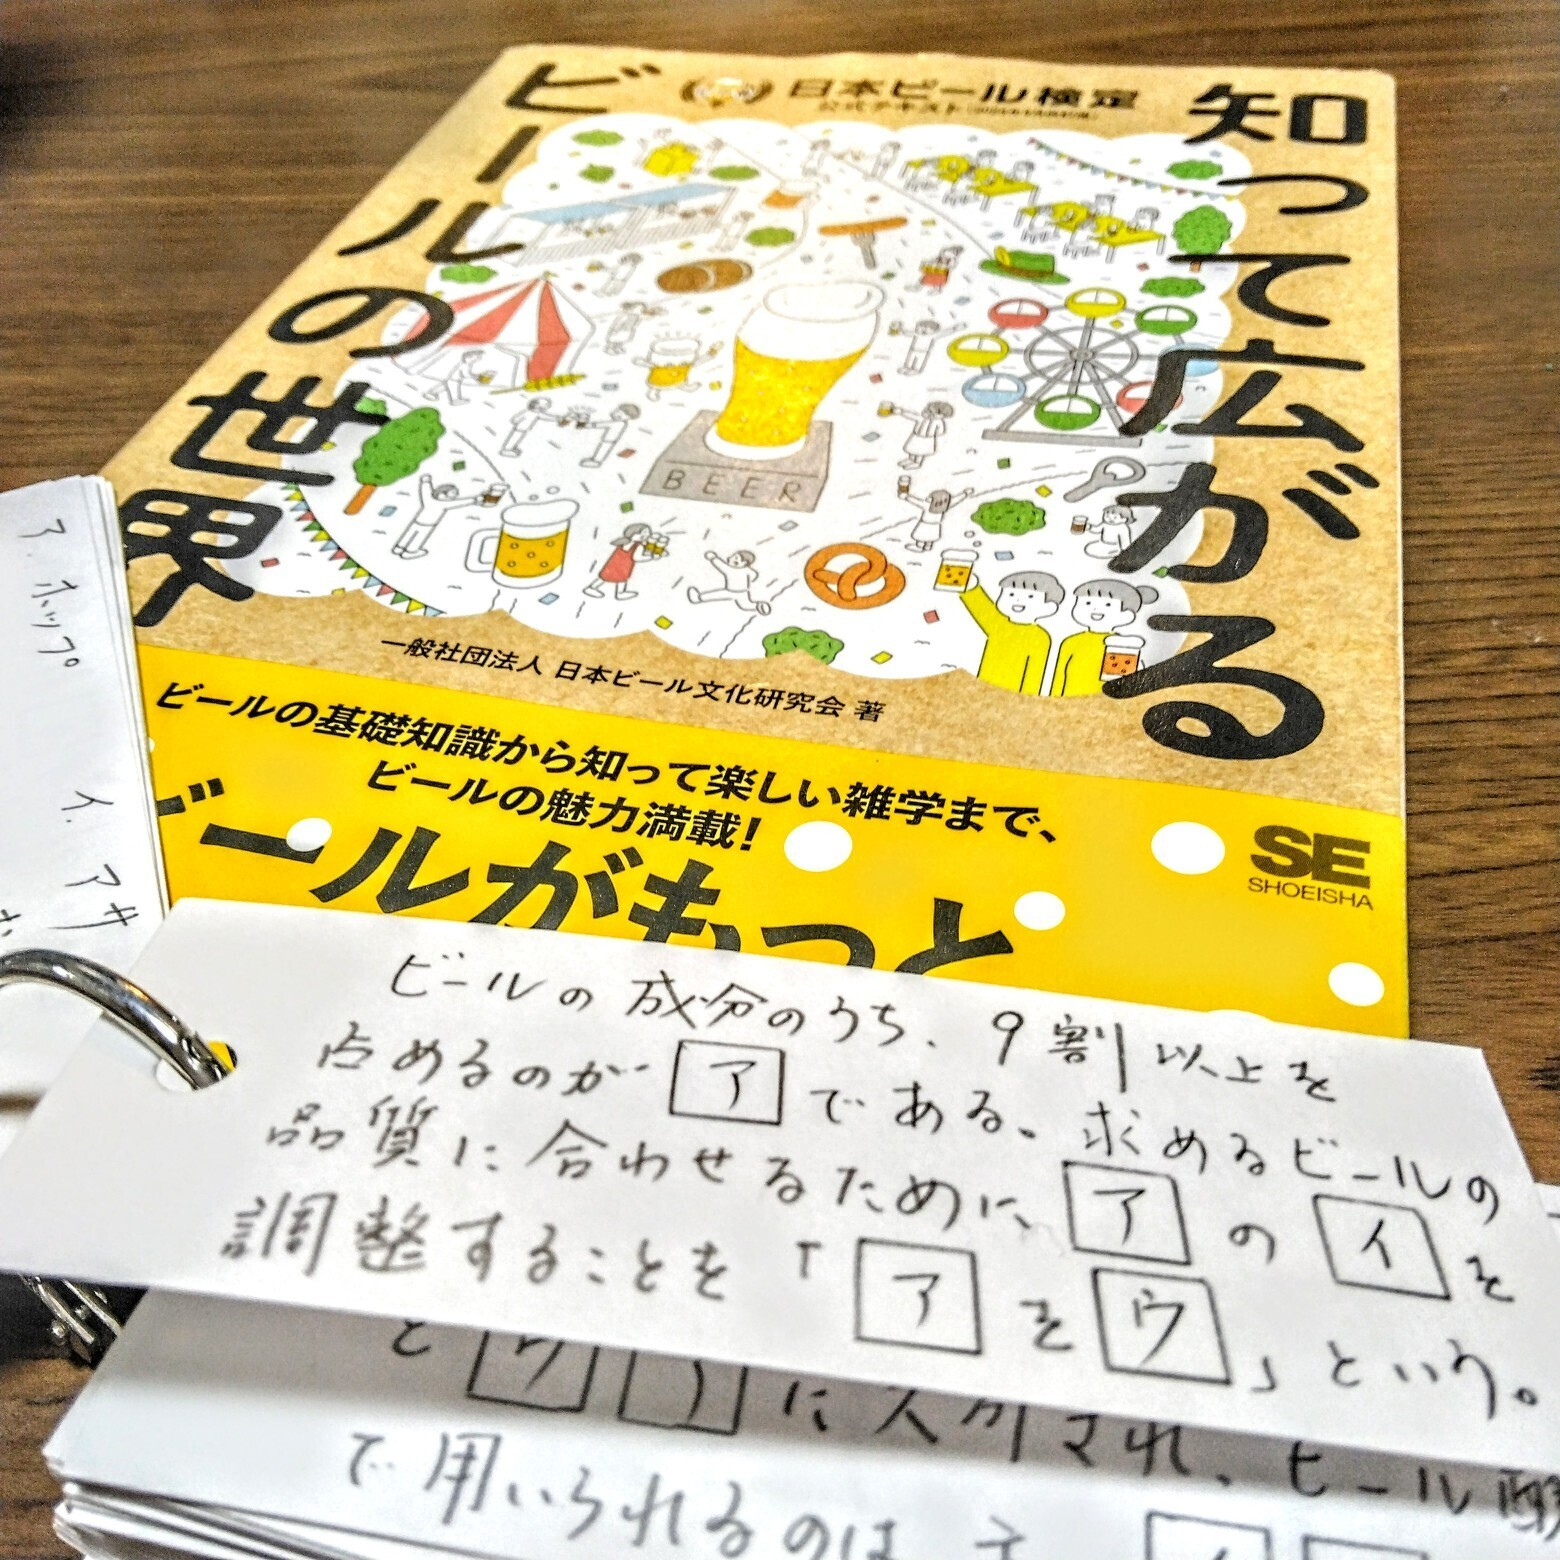 日本ビール検定
公式テキスト
知って広がる
ビールの世界
BEER
一般社団法人 日本ビール文化研究会 著
ビールの基礎知識から知って楽しい雑学まで、
ビールの魅力満載!
ビールがもっと
SE
SHOEISHA
ア.ホップ
イ.アサ
ビールの成分のうち、9割以上を
占めるのが ア である。求めるビールの
品質に合わせるために、 ア の イ を
調整することを「 ア を ウ 」という。
と ウ
に大別され、ビール
で用いられるのは